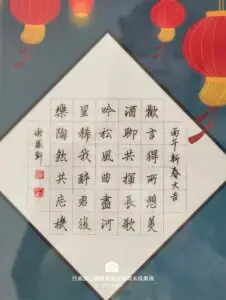 丙午新春大吉
歡言得所憩美
酒聊共揮長歌
吟松風曲盡河
星稀我醉君復
樂陶然共忘機